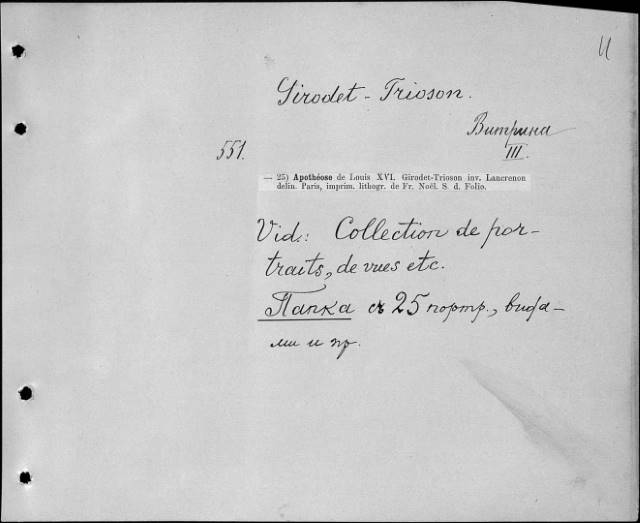 Girodet-Trioson.
Витрина
III.
551.
— 25) Apothéose de Louis XVI. Girodet-Trioson inv. Lancrenon
delin. Paris, imprim. lithogr. de Fr. Noël. S. d. Folio.
Vid.: Collection de por-
traits, de vues etc.
Папка съ 25 портр., вида-
ми и пр.